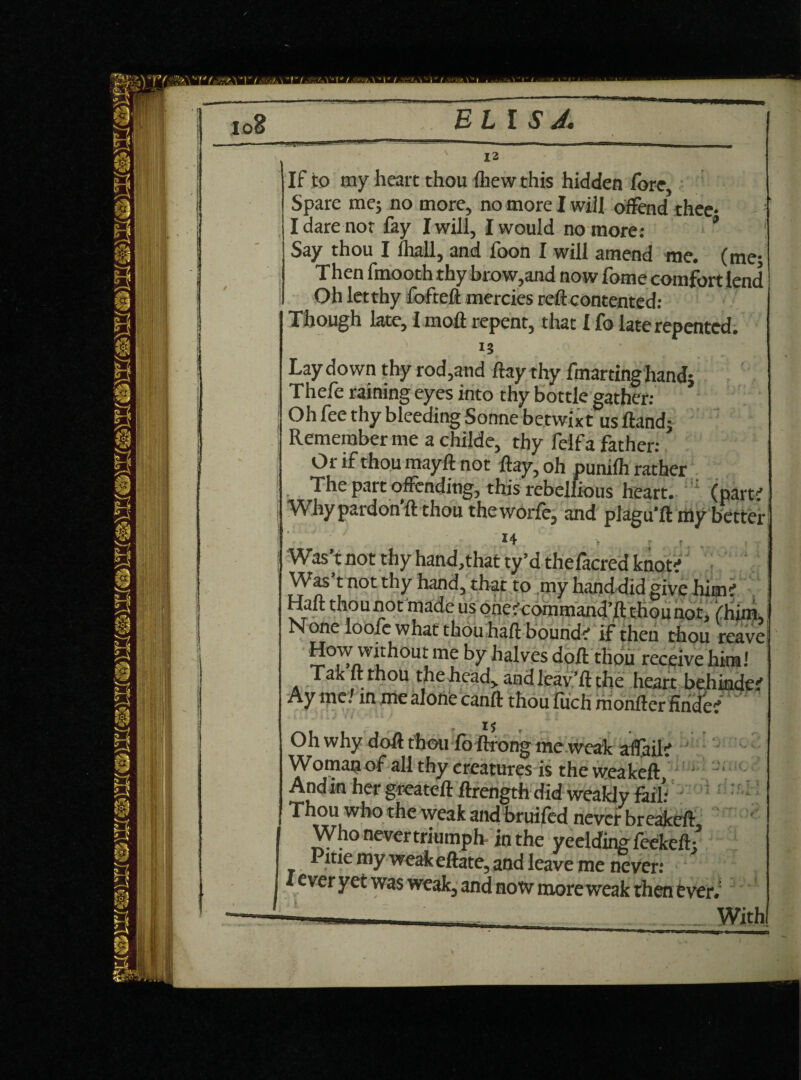 108
ELISA.
12
If to my heart thou ſhew this hidden ſore,
Spare me; no more, no more I will offend thee;
I dare not ſay I will, I would no more:
Say thou I ſhall, and ſoon I will amend me. (me;
Then ſmooth thy brow,and now ſome comfort lend
Oh let thy ſofteſt mercies reſt contented:
Though late, I moſt repent, that I ſo late repented.
13
Lay down thy rod,and ſtay thy ſmarting hand;
Theſe raining eyes into thy bottle gather:
Oh ſee thy bleeding Sonne betwixt us ſtand;
Remember me a childe, thy ſelf a father:
Or if thou mayſt not ſtay, oh puniſh rather
The part offending, this rebellious heart. (part?
Why pardon'ſt thou the worſe, and plagu'ſt my better
14
Was't not thy hand,that ty'd the ſacred knot?
Was't not thy hand, that to my hand did give him?
Haſt thou not made us one? command'ſt thou not, (him,
None looſe what thou haſt bound? if then thou reave
How without me by halves doſt thou receive him!
Tak'ſt thou the head, and leav'ſt the heart behinde?
Ay me! in me alone canſt thou ſuch monſter finde?
15
Oh why doſt thou ſo ſtrong me weak aſſail?
Woman of all thy creatures is the weakeſt,
And in her greateſt ſtrength did weakly fail:
Thou who the weak and bruiſed never breakeſt,
Who never triumph in the yeelding ſeekeſt;
Pitie my weak eſtate, and leave me never:
I ever yet was weak, and now more weak then ever.
With